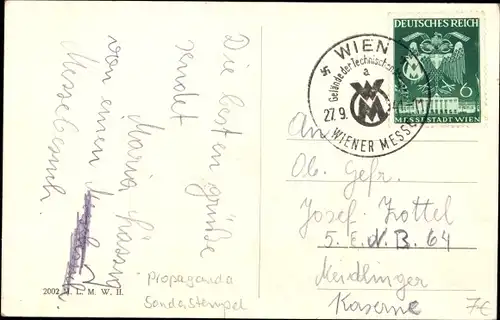 Die besten Grüße
sendet
Maria Lässig
von einen
Messebesuch.
2002 M. L. M. W. II.
Propaganda
Sonderstempel
WIEN
Gelände der Technischen
a
WM
27.9.
WIENER MESSE
DEUTSCHES REICH
WM
6
MESSESTADT WIEN
An
Ob. Gefr.
Josef Zottel
5. E. N. B. 64
Meidlinger
Kaserne
7€